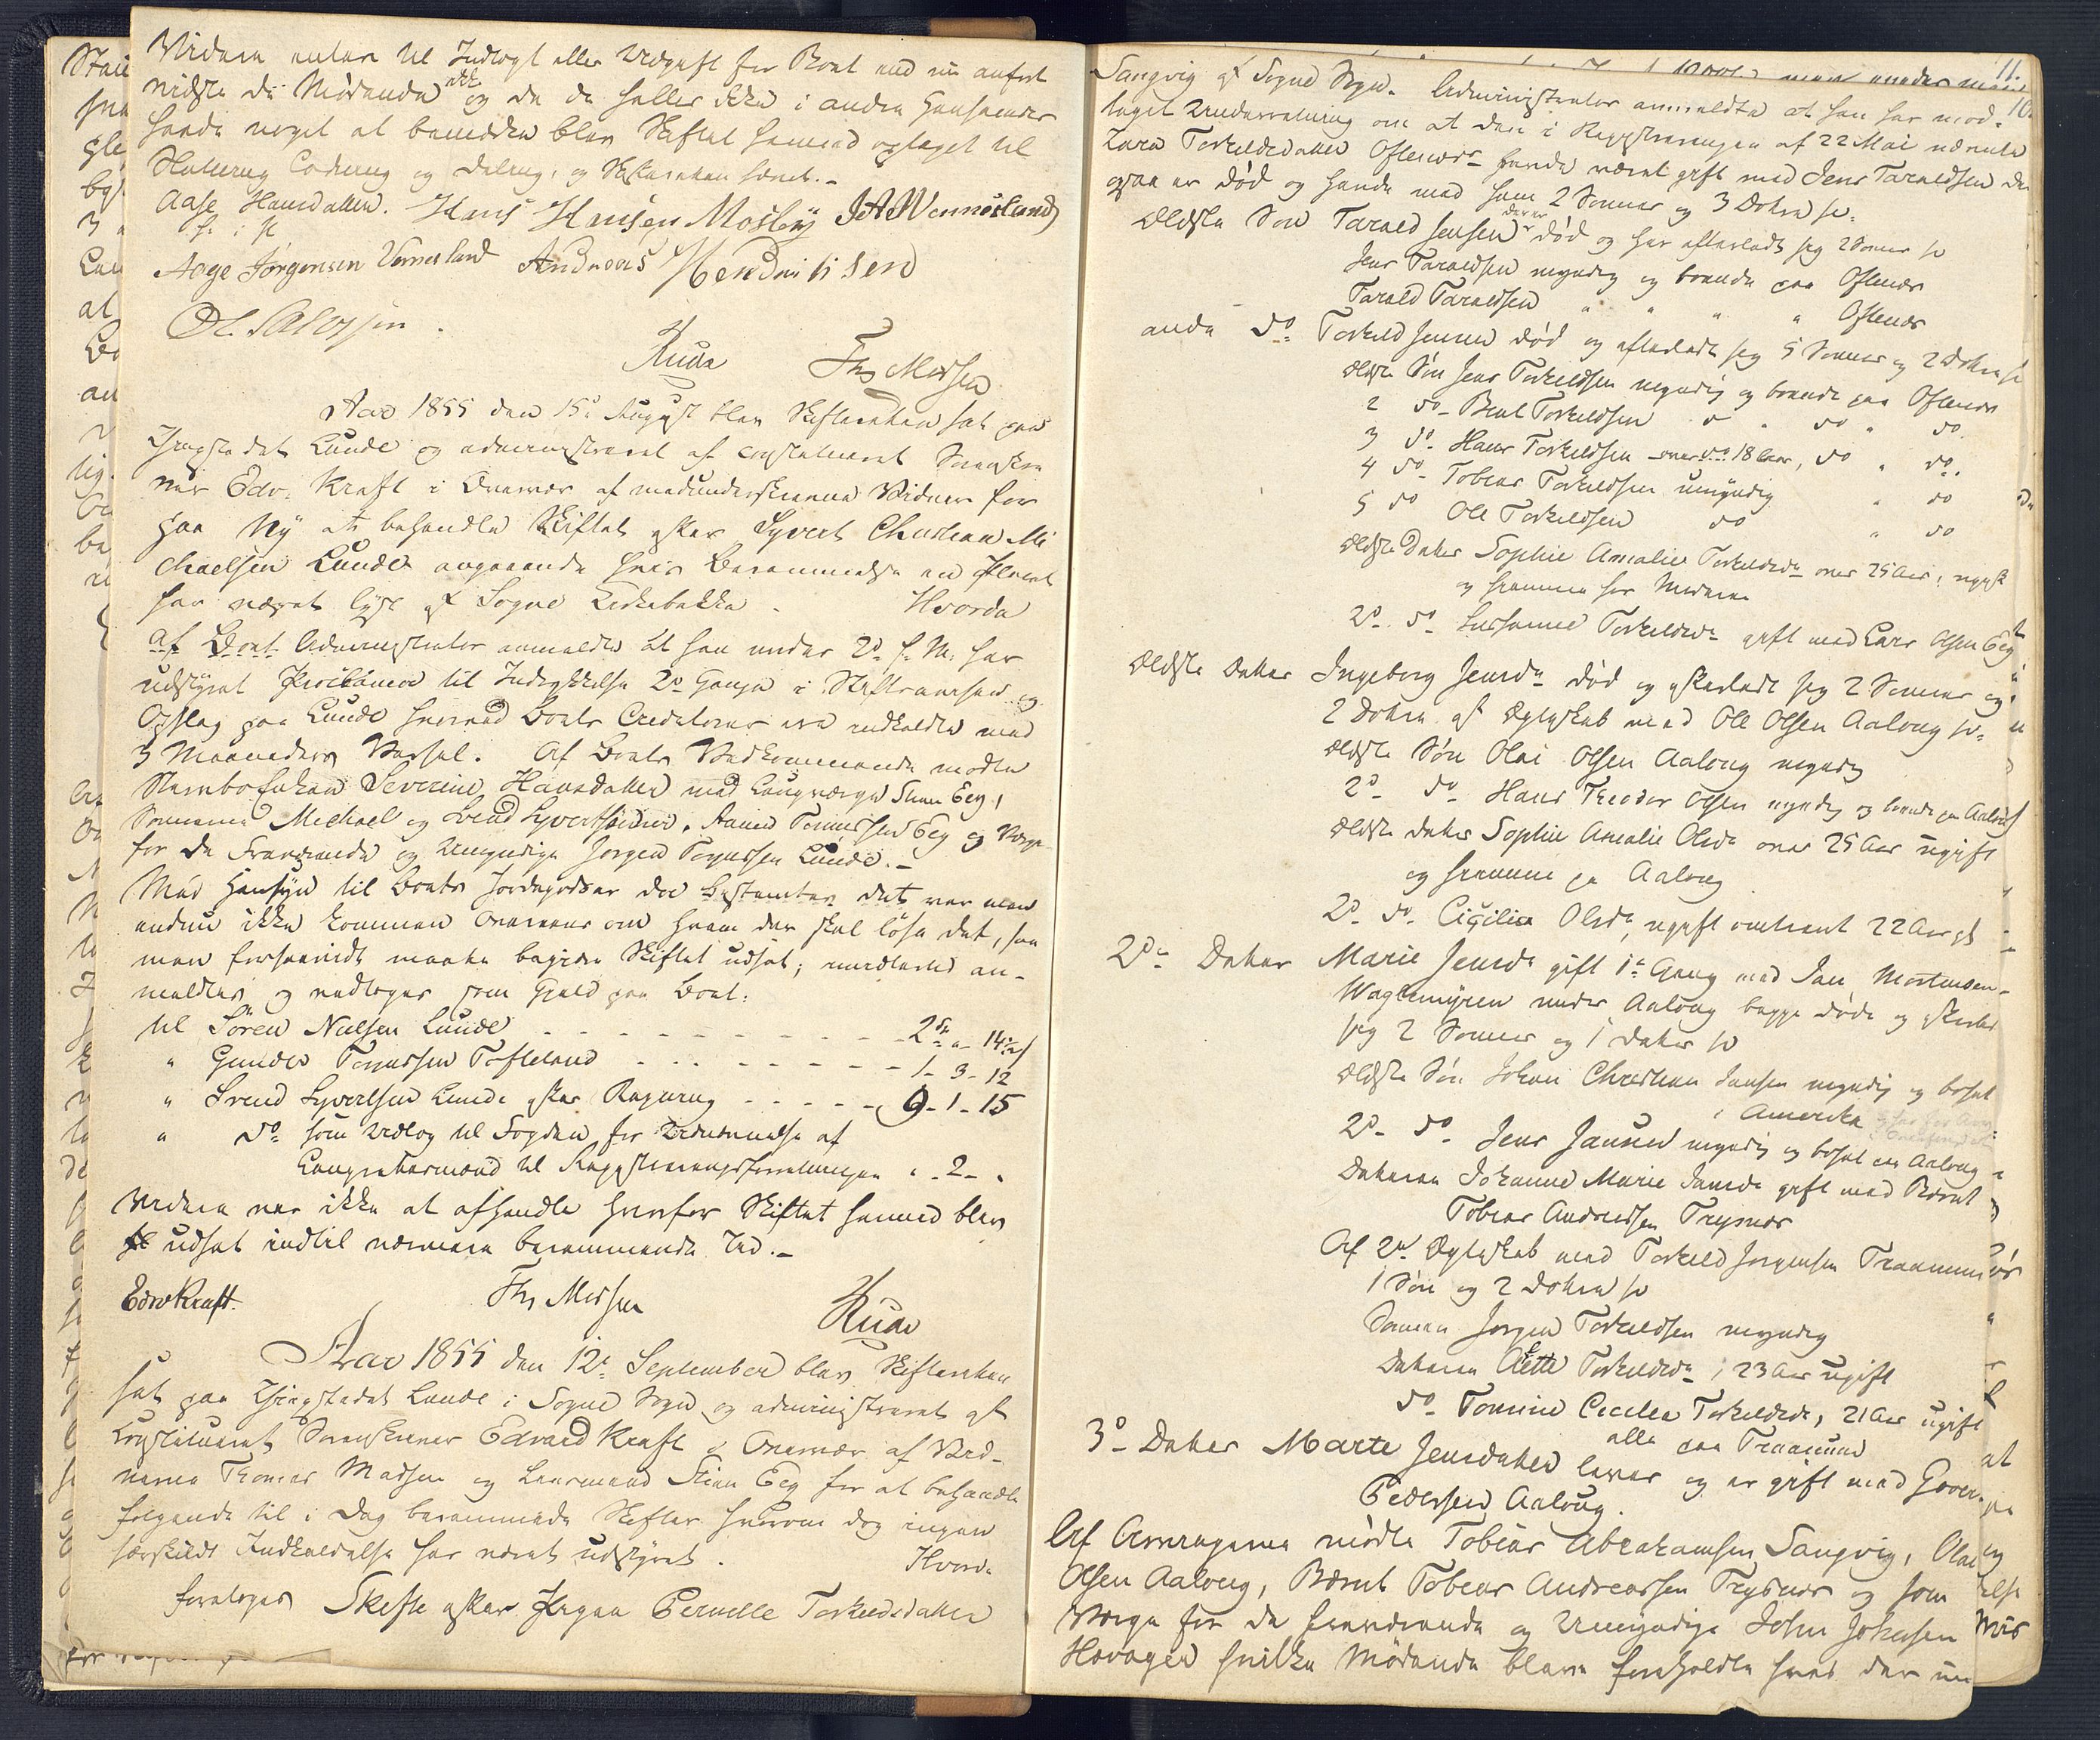 Videre enten til Indtægt eller Udgift for Boet end nu anført
vidste de Mødende ikke og da de heller ikke i anden Henseende
havde noget at bemærke blev Skiftet hermed optaget til
Slutning Lodning og Deling, og Skifteretten hævet.-
Aase Hansdatter. Hans Hansen Mosbÿ J A Wennesland
h. i. P.
Aage Jørgensen Vennesland Andreas Hendrikisen
Ol. Salvesen.
Rude Ths Madsen
Aar 1855 den 15de August blev Skifteretten sat paa
Thingstedet Lunde og administreret af constitueret Sorenskri
ver Edv. Kraft i Overvær af medunderskrevne Vidner for
paa Ny at behandle Skiftet efter Syvert Christian Mi
chaelsen Lunde angaaende hvis Berammelse en Placat
har været lyst af Sogne Kirkebakke. Hvorda
af Boet Administrator anmeldte at han under 2de f. M. har
udstyret Proclama til Indrykkelse 2de Gange i Stiftsavisen og
Opslag paa Lunde hvorved Boets Creditorer ere indkaldte med
3 Maaneders Varsel. Af Boets Vedkommende mødte
Stervboenken Severine Hansdatter med Laugværge Stian Eeg,
Sønnerne Michael og Svend Syvertsønner, Aanen Tønnessen Eeg og Værge
for de Fraværende og Umyndige Jørgen Tønnessen Lunde.-
Med Hensyn til Boets Jordegods
endnu ikke kommen overeens om hvem der skal løse det, saa
man forsaavidt maatte begjære Skiftet udsat; imidlertid an-
meldtes og vedtoges som Gjeld paa Boet:
til Søren Nielsen Lunde - - - - - - - - 2 Sp " - 14½ s
" Gunder Tønnessen Tofteland - - - - - - 1 - 3 - 12
" Svend Syvertsen Lunde efter Regning - - - - - 9 - 1 - 15
" do som Udlæg til Fogden for Udnævnelse af
Laugrettesmænd til Registreringsforretningen " - 2 - "
Videre var ikke at afhandle hvorfor Skiftet hermed blev
udsat indtil nærmere berammende Tid.-
Edv Kraft. Ths Madsen Rude
Aar 1855 den 12te September blev Skifteretten
sat paa Thingstedet Lunde i Sogne Sogn og administreret af
constitueret Sorenskriver Edvard Kraft i Overvær af Vid-
nerne Thomas Madsen og Lensmand Stian Eeg for at behandle
følgende til i Dag berammede Skifter hvorom dog ingen
særskildt Indkaldelse har været udstyret. Hvorda
foretoges Skifte efter Pigen Pernille Torkildsdatter
11.
10.
Sangvig af Sogne Sogn. Administrator anmeldte at han har mod-
taget Underretning om at den i Registreringen af 22 Mai nævnte
Zara Torkildsdatter Oftenæs havde været gift med Jens Taraldsen der
ogsaa er død og havde med ham 2 Sønner og 3 Døtre so:
Ældste Søn Tarald Jensen der er død og har efterladt sig 2 Sønner so
Jens Taraldsen myndig og boende paa Oftenæs
Tarald Taraldsen " " " " Oftenæs
anden do: Torkild Jensen død og efterladt sig 5 Sønner og 2 Døtre so
Ældste Søn Jens Torkildsen myndig og boende paa Oftenæs
2 do - Bent Torkildsen " " do " do.
3 do. Hans Torkildsen over 18 Aar, do " do.
4 do - Tobias Torkildsen umyndig " do
5 do Ole Torkildsen do " do
Ældste Datter Sophie Amalie Torkildsd. over 25 Aar, ugift
og hjemme hos Moderen
2d. do. Susanne Torkildsd. gift med Lars Olsen Eeg
Ældste Datter Ingeborg Jensd. død og efterladt sig 2 Sønner og
2 Døtre af Ægteskab med Ole Olsen Aalong so:
Ældste Søn Olai Olsen Aalong myndig
2d. do. Hans Theodor Olsen myndig og boende paa Aalong
Ældste Datter Sophie Amalie Olsd. over 25 Aar ugift
og hjemme paa Aalong
2d. do. Cicilia Olsd., ugift omtrent 22 Aar gl
2den Datter Marie Jensd. gift 1te Gang med Jan Mortensen
Wagtemyren under Aalong begge døde og efterladt
sig 2 Sønner og 1 Datter so
Ældste Søn Johan Christian Jansen myndig og bosat
i Amerika
2d. do. Jens Jansen myndig og bosat paa Aalong
Datteren Johanne Marie Jansd. gift med Bernt
Tobias Andreassen Trysnæs
Af 2det Ægteskab med Torkild Jørgensen Traanum
1 Søn og 2 Døtre so
Sønnen Jørgen Torkildsen myndig
Datteren Alette Torkildsd., 23 Aar ugift
do - Tomine Cecilia Torkildsd., 21 Aar ugift
alle paa Traanum
3de Datter Marte Jensdatter lever og er gift med Gover
Pedersen Aalong.
Af Arvingerne mødte Tobias Abrahamsen Sangvig, Olai
Olsen Aalong, Bernt Tobias Andreassen Trysnæs og som
Værge for de fraværende og Umyndige John Johnsen
Høvaagen hvilke Mødende bleve foreholdte hvad der nu